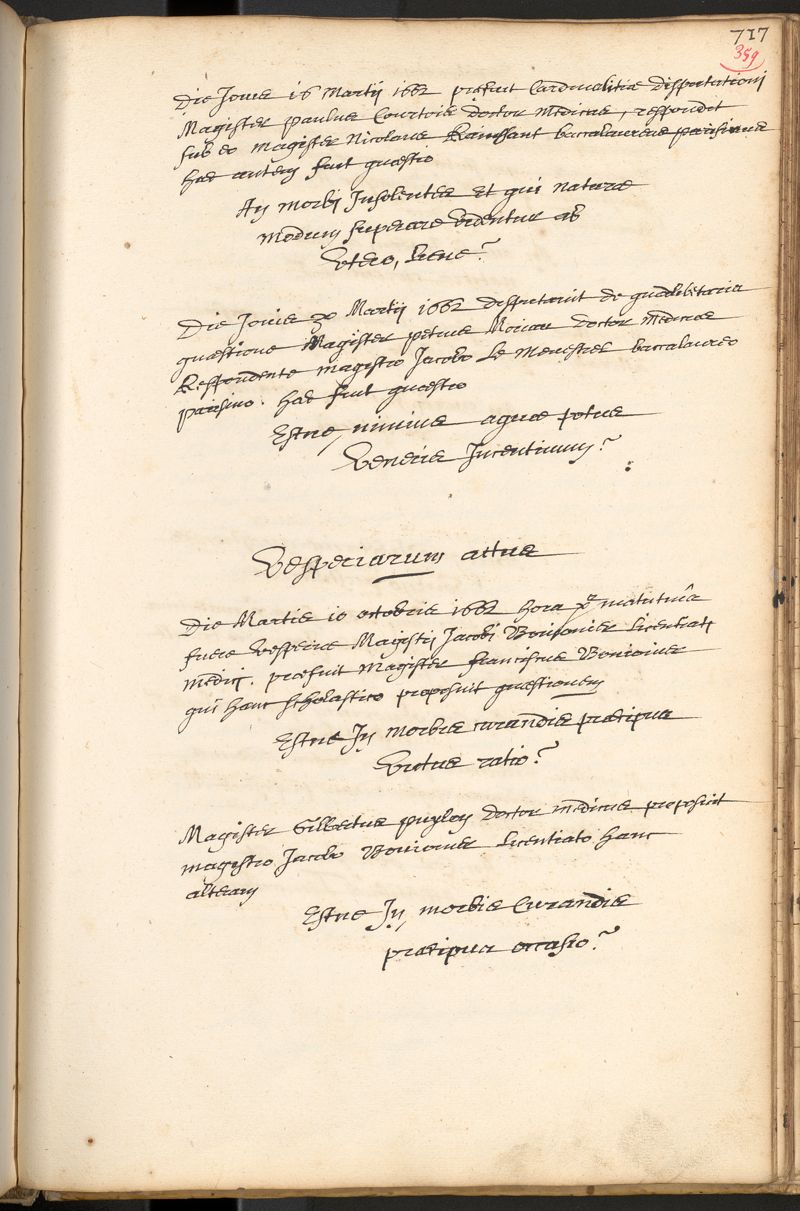 717
359
Die Jovis 16 Martij 1662 præfuit Cardinalitiæ Disputationi
Magister paulus Courtois Doctor medicus, respondit
sub eo magister Nicolaus Rainssant baccalaureus parisinus
hæc autem fuit quæstio
An morbi Insolentes et qui naturæ
modum superare videntur ab
Utero, Liene?
Die Jovis 30 Martij 1662 disputavit de quodlibetaria
quæstione Magister petrus Moriau Doctor medicus
Respondente magistro Jacobo Le Menestrel baccalaureo
parisino. hæc fuit quæstio
Estne, nimius aquæ potus
Veneris Incentivum?
Vesperiarum actus
Die Martis 10 octobris 1662 hora xª matutinâ
fuere vesperiæ Magistri Jacobi Bouvonier Licentiati
medici. præfuit Magister franciscus Bouvonier
qui hanc scholastico proposuit quæstionem
Estne In morbis curandis præcipua
Victus ratio?
Magister Gilbertus puylon Doctor medicus proposuit
magistro Jacobo Bouvonier Licentiato hanc
alteram
Estne In morbis Curandis
præcipua occasio?